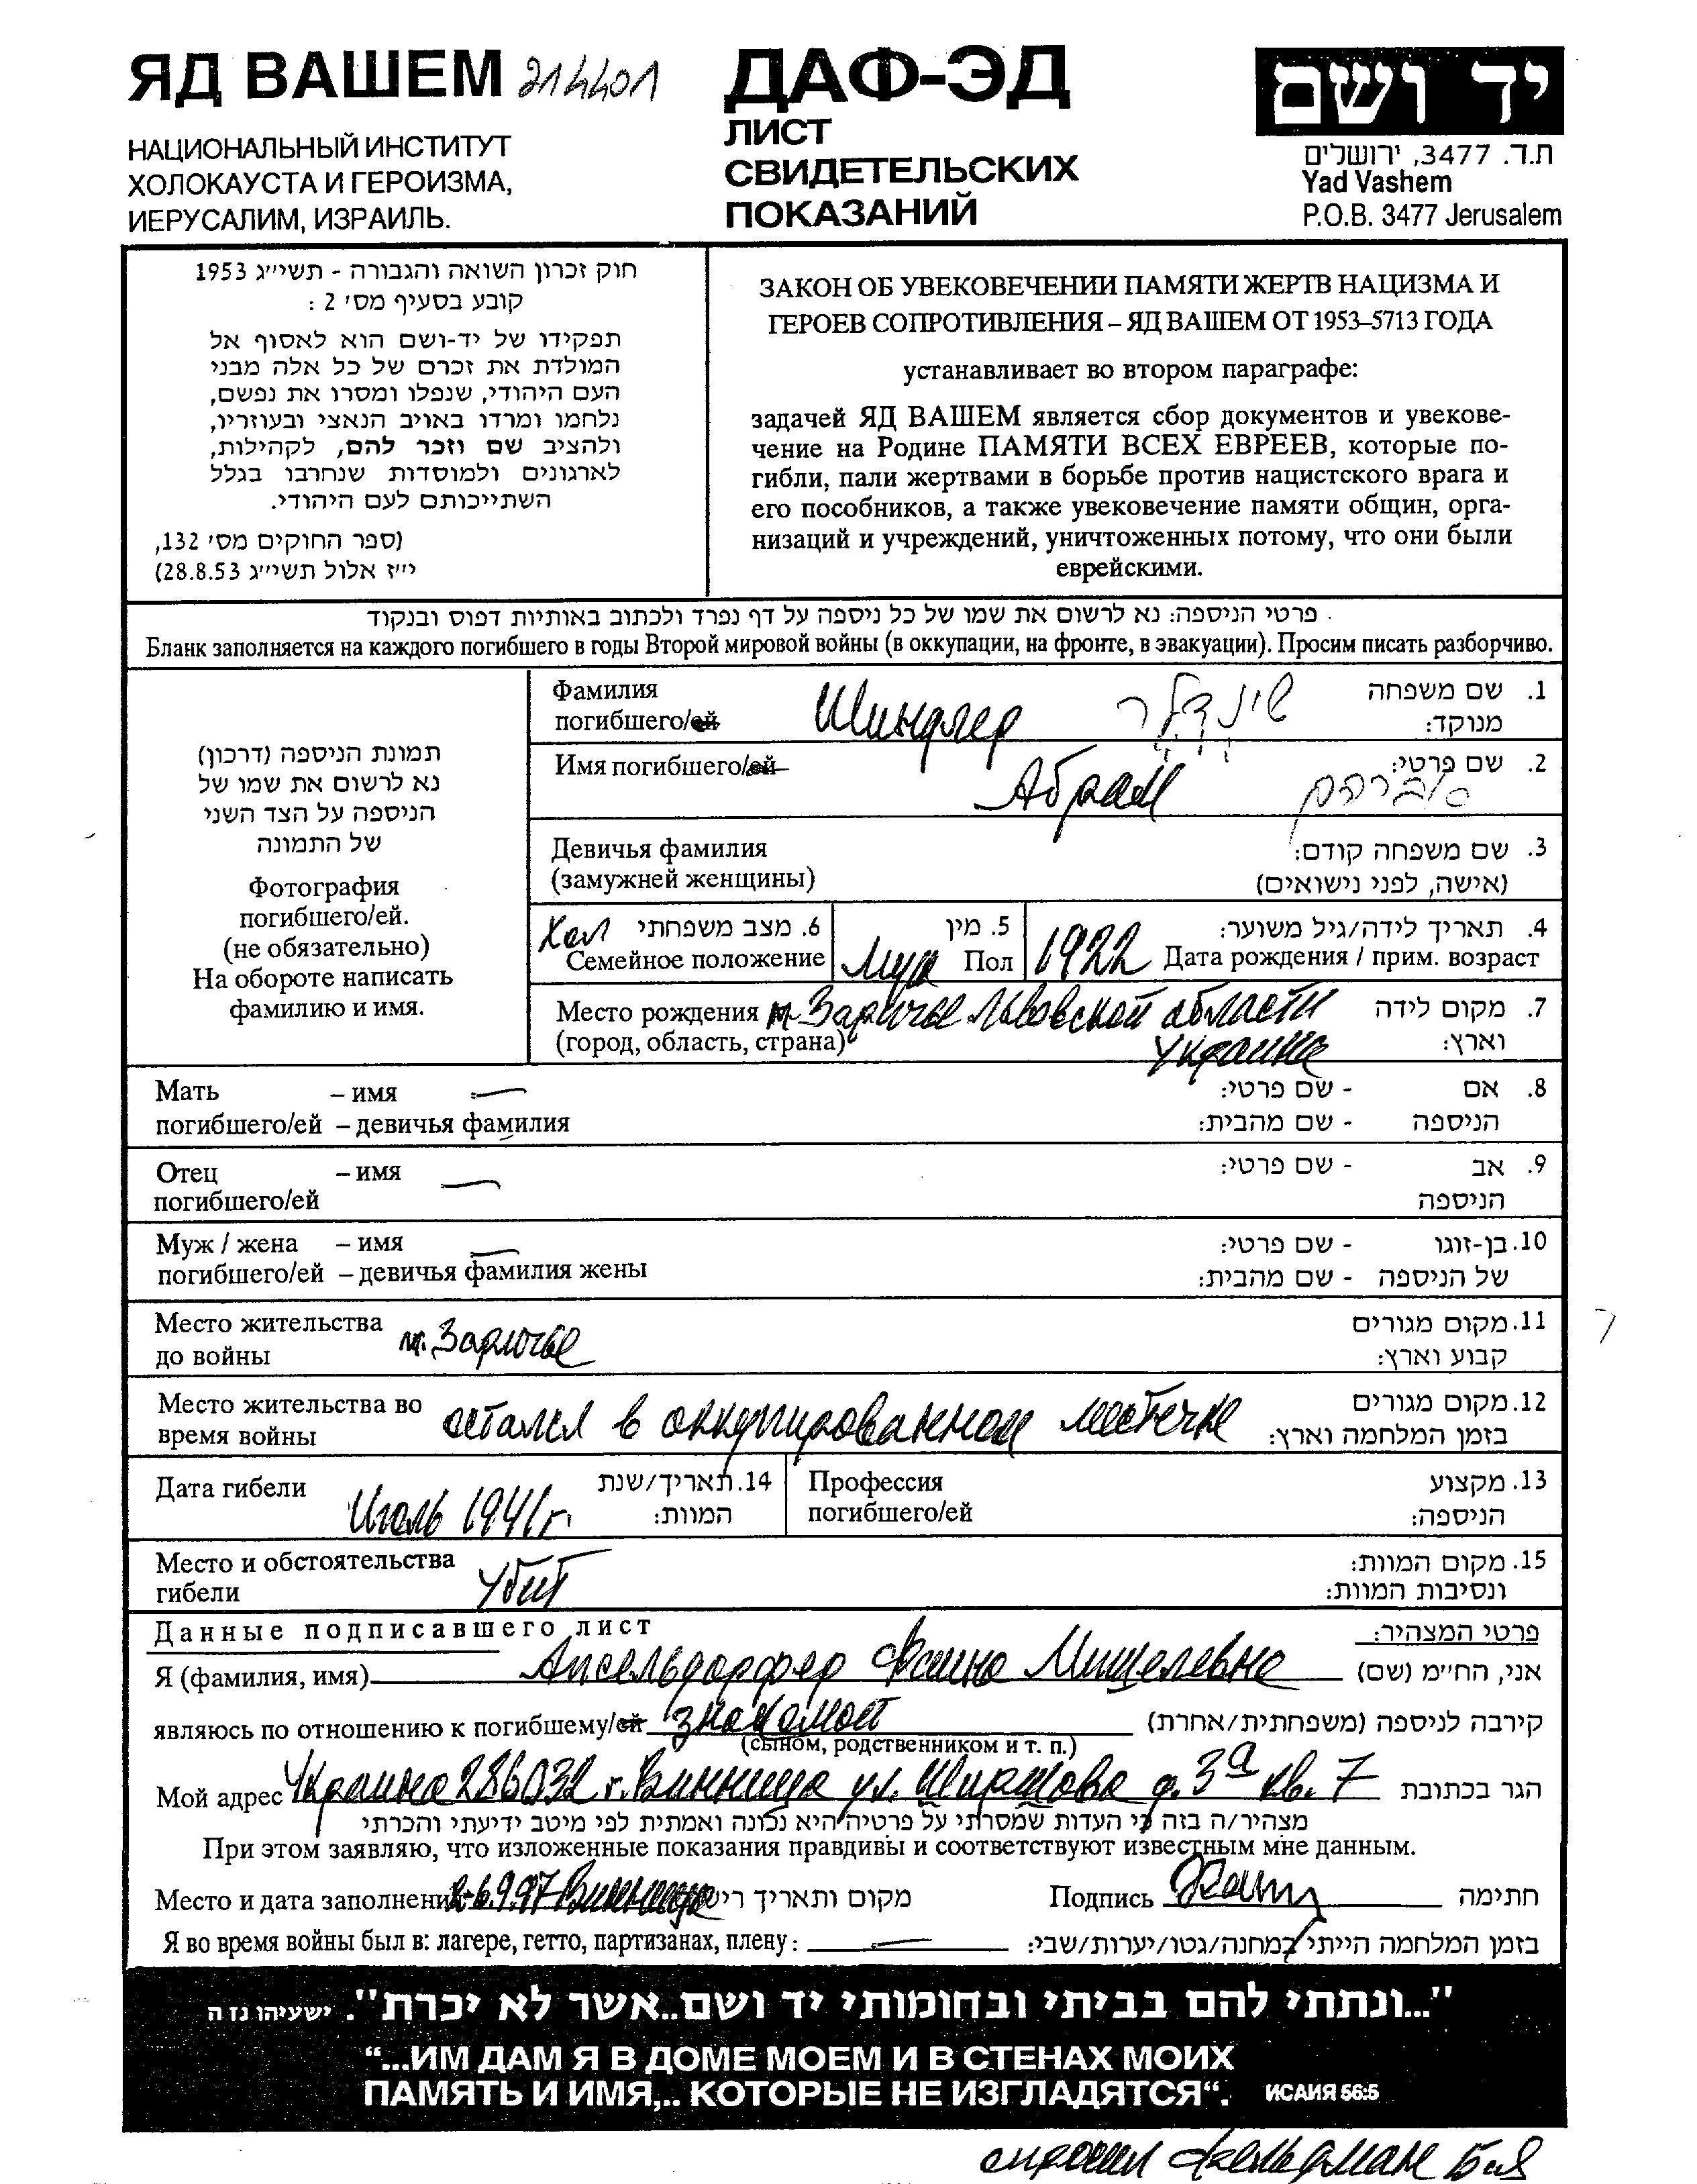 ЯД ВАШЕМ 214401
НАЦИОНАЛЬНЫЙ ИНСТИТУТ
ХОЛОКАУСТА И ГЕРОИЗМА,
ИЕРУСАЛИМ, ИЗРАИЛЬ.
ДАФ-ЭД
ЛИСТ
СВИДЕТЕЛЬСКИХ
ПОКАЗАНИЙ
יד ושם
ת.ד. 3477, ירושלים
Yad Vashem
P.O.B. 3477 Jerusalem
חוק זכרון השואה והגבורה - תשי״ג 1953
קובע בסעיף מס׳ 2 :
תפקידו של יד-ושם הוא לאסוף אל
המולדת את זכרם של כל אלה מבני
העם היהודי, שנפלו ומסרו את נפשם,
נלחמו ומרדו באויב הנאצי ובעוזריו,
ולהציב שם וזכר להם, לקהילות,
לארגונים ולמוסדות שנחרבו בגלל
השתייכותם לעם היהודי.
(ספר החוקים מס׳ 132,
י״ז אלול תשי״ג 28.8.53)
ЗАКОН ОБ УВЕКОВЕЧЕНИИ ПАМЯТИ ЖЕРТВ НАЦИЗМА И
ГЕРОЕВ СОПРОТИВЛЕНИЯ – ЯД ВАШЕМ ОТ 1953–5713 ГОДА
устанавливает во втором параграфе:
задачей ЯД ВАШЕМ является сбор документов и увекове-
чение на Родине ПАМЯТИ ВСЕХ ЕВРЕЕВ, которые по-
гибли, пали жертвами в борьбе против нацистского врага и
его пособников, а также увековечение памяти общин, орга-
низаций и учреждений, уничтоженных потому, что они были
еврейскими.
פרטי הניספה: נא לרשום את שמו של כל ניספה על דף נפרד ולכתוב באותיות דפוס ובנקוד
Бланк заполняется на каждого погибшего в годы Второй мировой войны (в оккупации, на фронте, в эвакуации). Просим писать разборчиво.
תמונת הניספה (דרכון)
נא לרשום את שמו של
הניספה על הצד השני
של התמונה
Фотография
погибшего/ей.
(не обязательно)
На обороте написать
фамилию и имя.
Фамилия
погибшего/ей Шиндлер שינדלר
1. שם משפחה
מנוקד:
Имя погибшего/ей Абрам אברהם
2. שם פרטי:
Девичья фамилия
(замужней женщины)
3. שם משפחה קודם:
(אישה, לפני נישואים)
Хол 6. מצב משפחתי
Семейное положение
5. מין
Муж Пол
1922 4. תאריך לידה/גיל משוער:
Дата рождения / прим. возраст
Место рождения м. Заричье Львовской области
(город, область, страна) Украина
7. מקום לידה
וארץ:
Мать – имя —
погибшего/ей – девичья фамилия
8. אם - שם פרטי:
הניספה - שם מהבית:
Отец – имя —
погибшего/ей
9. אב - שם פרטי:
הניספה
Муж / жена – имя —
погибшего/ей – девичья фамилия жены
10. בן-זוגו - שם פרטי:
של הניספה - שם מהבית:
Место жительства м. Заричье
до войны
11. מקום מגורים
קבוע וארץ:
Место жительства во остался в оккупированном местечке
время войны
12. מקום מגורים
בזמן המלחמה וארץ:
Дата гибели Июль 1941 г.
14. תאריך/שנת
המוות:
Профессия
погибшего/ей
13. מקצוע
הניספה:
Место и обстоятельства
гибели Убит
15. מקום המוות:
ונסיבות המוות:
Данные подписавшего лист
פרטי המצהיר:
Я (фамилия, имя) Апсельдорфер Фаина Мишелевна אני, הח״מ (שם)
являюсь по отношению к погибшему/ей знакомой קירבה לניספה (משפחתית/אחרת)
(сыном, родственником и т. п.)
Мой адрес Украина 286032 г. Винница ул. Ширшова д. 3а кв. 7 הגר בכתובת
מצהיר/ה בזה כי העדות שמסרתי על פרטיה היא נכונה ואמתית לפי מיטב ידיעתי והכרתי
При этом заявляю, что изложенные показания правдивы и соответствуют известным мне данным.
Место и дата заполнения Винница מקום ותאריך
Подпись חתימה
Я во время войны был в: лагере, гетто, партизанах, плену: — בזמן המלחמה הייתי במחנה/גטו/יערות/שבי:
"...ונתתי להם בביתי ובחומותי יד ושם..אשר לא יכרת". ישעיהו נז ה
“...ИМ ДАМ Я В ДОМЕ МОЕМ И В СТЕНАХ МОИХ
ПАМЯТЬ И ИМЯ,.. КОТОРЫЕ НЕ ИЗГЛАДЯТСЯ“. ИСАИЯ 56:5
Фельдман